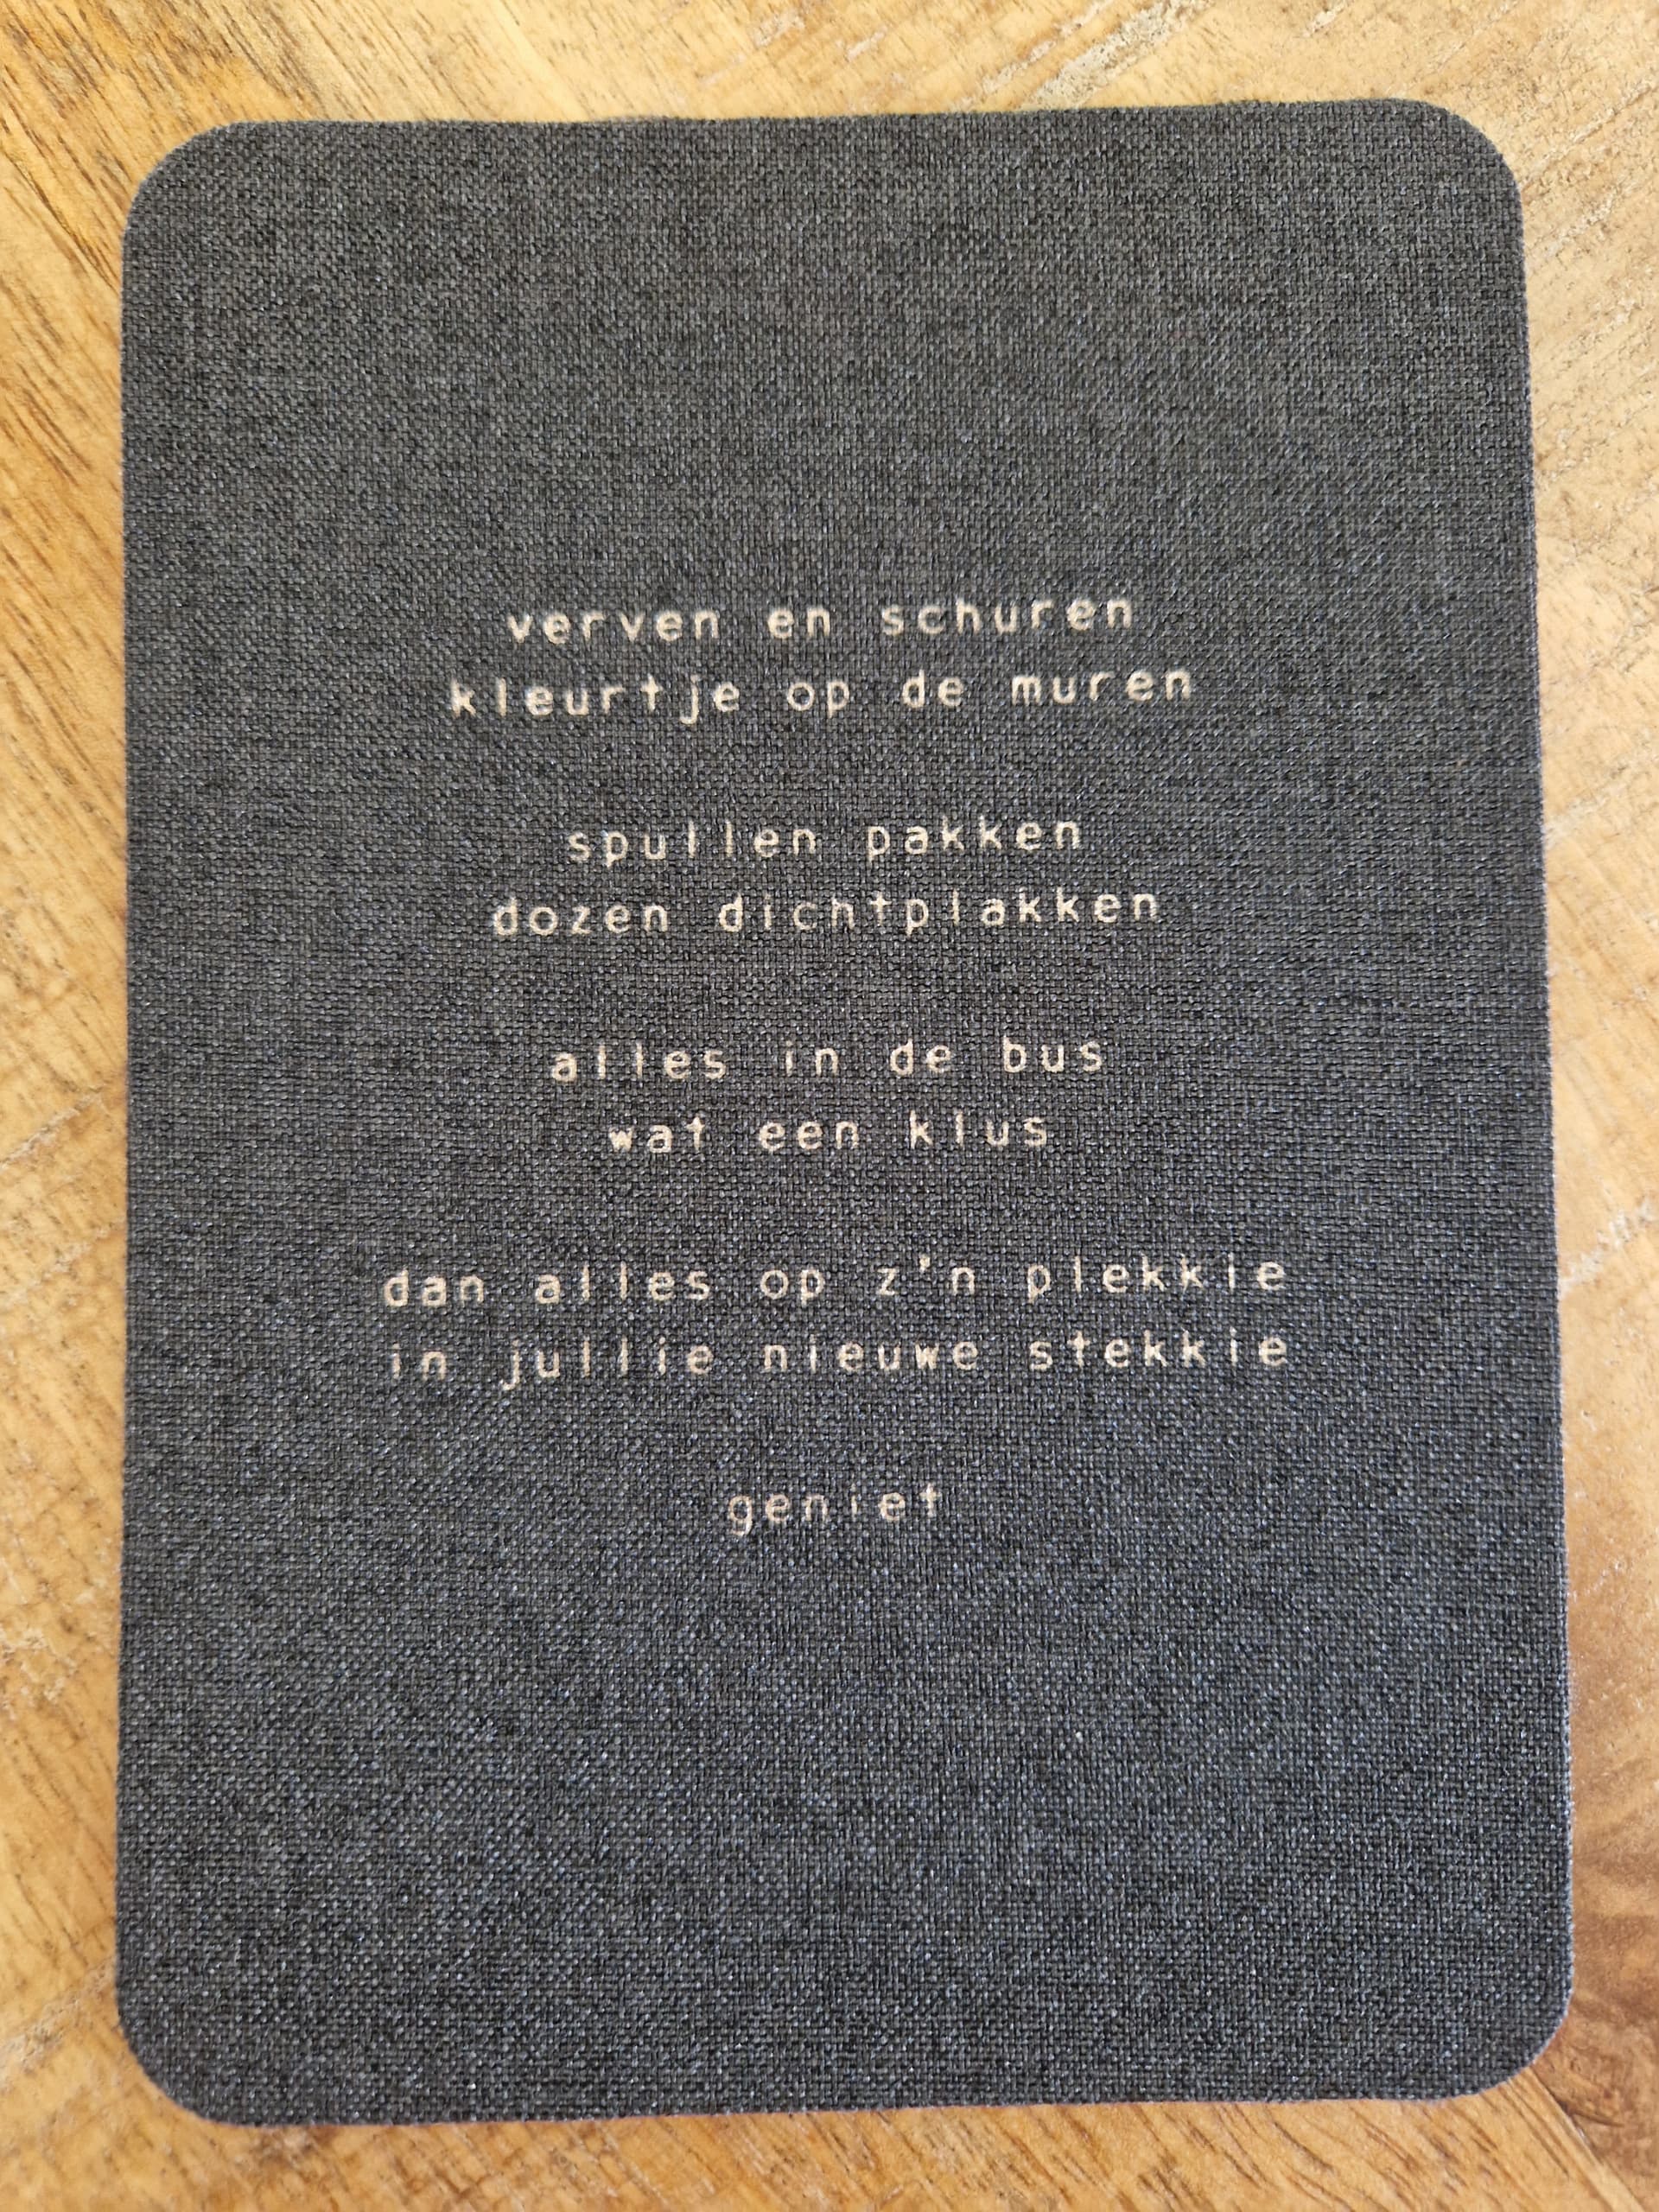 verven en schuren
kleurtje op de muren
spullen pakken
dozen dichtplakken
alles in de bus
wat een klus
dan alles op z'n plekkie
in jullie nieuwe stekkie
geniet